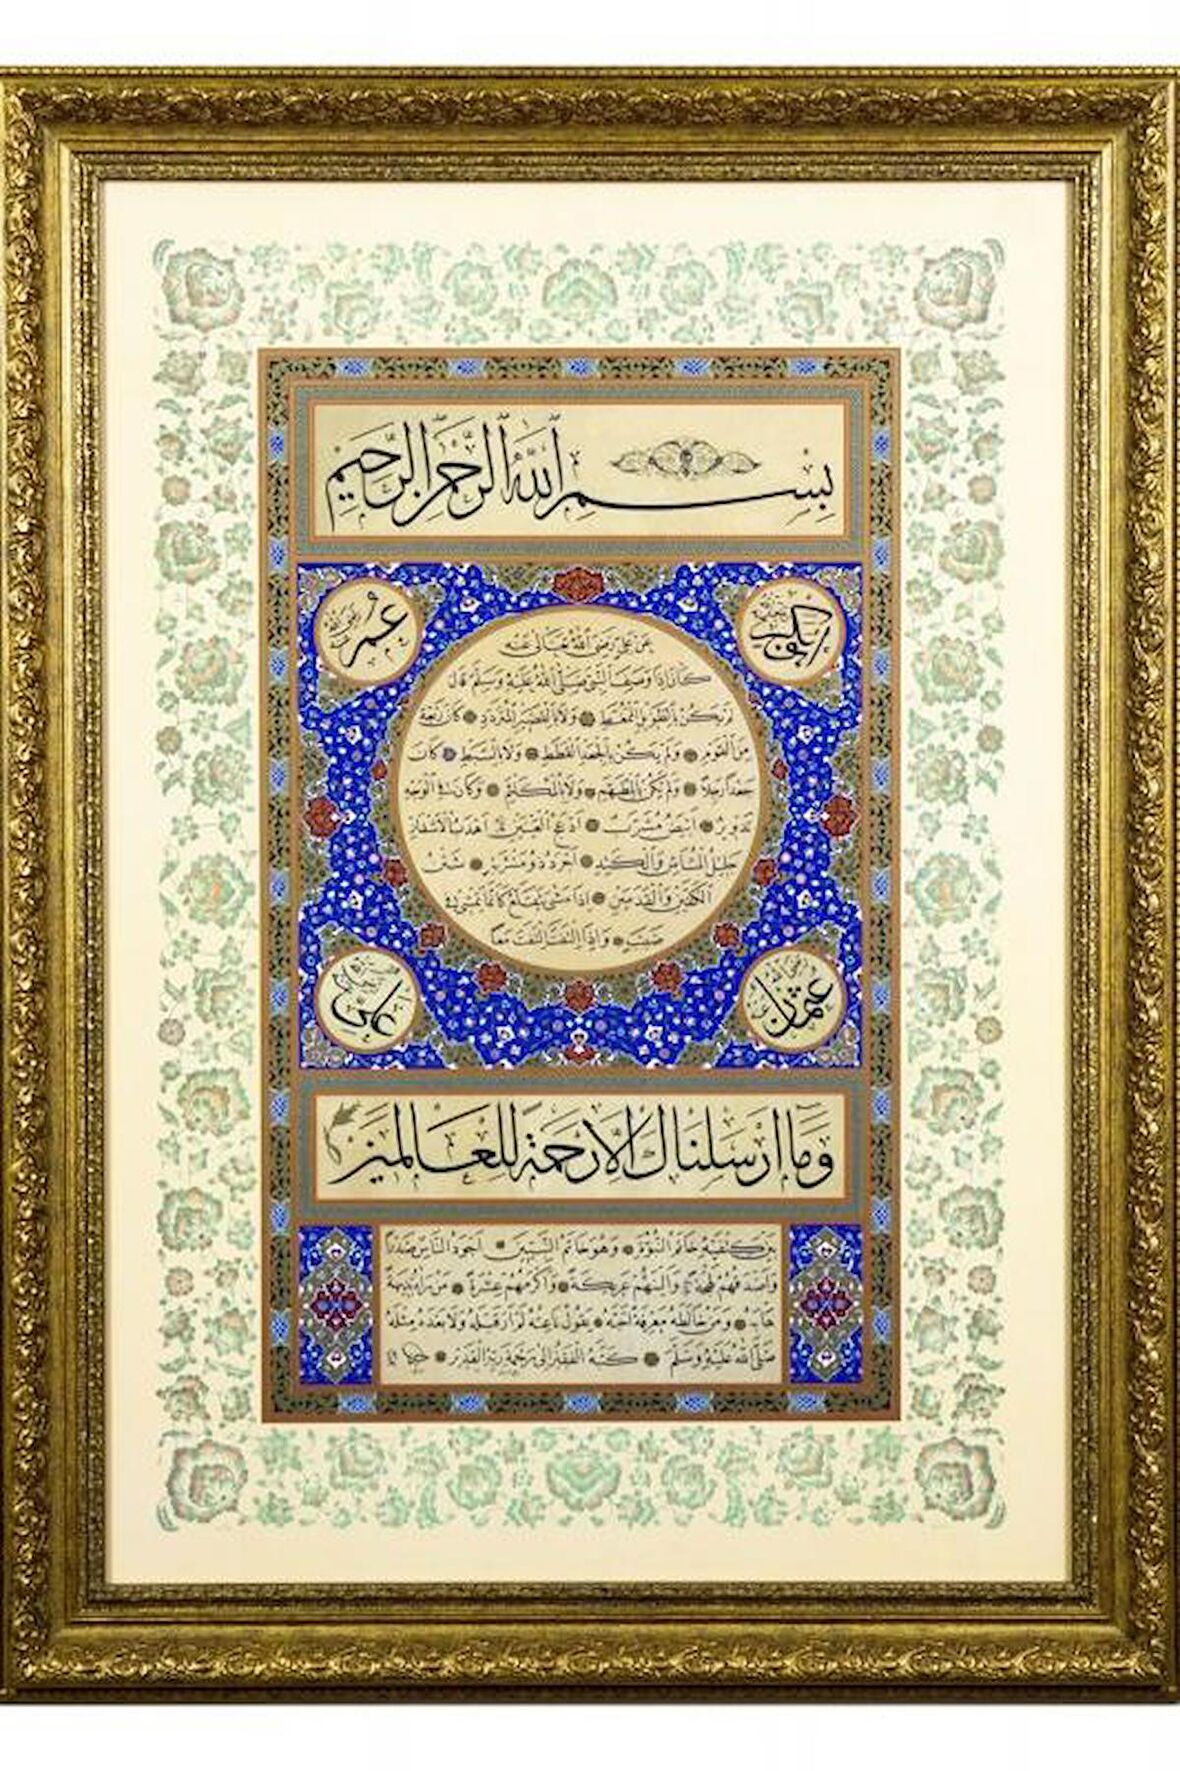 بِسْمِ اللّٰهِ الرَّحْمٰنِ الرَّحِيمِ
ابو بكر رضي الله عنه
عمر رضي الله عنه
عَنْ عَلِيّ رَضِيَ اللّٰهُ تَعَالَى عَنْهُ
كَانَ اِذَا وَصَفَ النَّبِيَّ صَلَّى اللّٰهُ عَلَيْهِ وَسَلَّمَ قَالَ
لَمْ يَكُنْ بِالطَّوِيلِ الْمُمَّغِطِ وَلَا بِالْقَصِيرِ الْمُتَرَدِّدِ كَانَ رَبْعَةً
مِنَ الْقَوْمِ وَلَمْ يَكُنْ بِالْجَعْدِ الْقَطَطِ وَلَا بِالسَّبِطِ كَانَ
جَعْدًا رَجِلًا وَلَمْ يَكُنْ بِالْمُطَهَّمِ وَلَا بِالْمُكَلْثَمِ وَكَانَ فِي الْوَجْهِ
تَدْوِيرٌ اَبْيَضُ مُشْرَبٌ اَدْعَجُ الْعَيْنَيْنِ اَهْدَبُ الْاَشْفَارِ
جَلِيلُ الْمُشَاشِ وَالْكَتَدِ اَجْرَدُ ذُو مَسْرُبَةٍ شَثْنُ
الْكَفَّيْنِ وَالْقَدَمَيْنِ اِذَا مَشَى يَتَقَلَّعُ كَاَنَّمَا يَمْشِي فِي
صَبَبٍ وَاِذَا الْتَفَتَ الْتَفَتَ مَعًا
عثمان رضي الله عنه
علي رضي الله عنه
وَمَا اَرْسَلْنَاكَ اِلَّا رَحْمَةً لِلْعَالَمِينَ
بَيْنَ كَتِفَيْهِ خَاتَمُ النُّبُوَّةِ وَهُوَ خَاتَمُ النَّبِيِّينَ اَجْوَدُ النَّاسِ صَدْرًا
وَاَصْدَقُهُمْ لَهْجَةً وَاَلْيَنُهُمْ عَرِيكَةً وَاَكْرَمُهُمْ عِشْرَةً مَنْ رَاٰهُ بَدِيهَةً
هَابَهُ وَمَنْ خَالَطَهُ مَعْرِفَةً اَحَبَّهُ يَقُولُ نَاعِتُهُ لَمْ اَرَ قَبْلَهُ وَلَا بَعْدَهُ مِثْلَهُ
صَلَّى اللّٰهُ عَلَيْهِ وَسَلَّمَ كَتَبَهُ الْفَقِيرُ اِلَى رَحْمَةِ رَبِّهِ الْقَدِيرِ